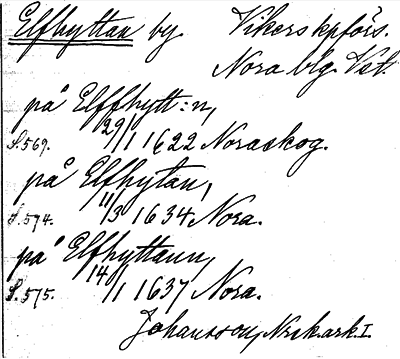 Elfhyttan by Vikers kpförs.
Nora blg. Vst.
på Elffhytt:n,
S.569. 29/1 1622 Noraskog.
på Elfhytan,
S.574. 11/3 1634 Nora.
på Elfhyttann,
S.575. 14/1 1637 Nora.
Johansson, Nrsk.ark.I.